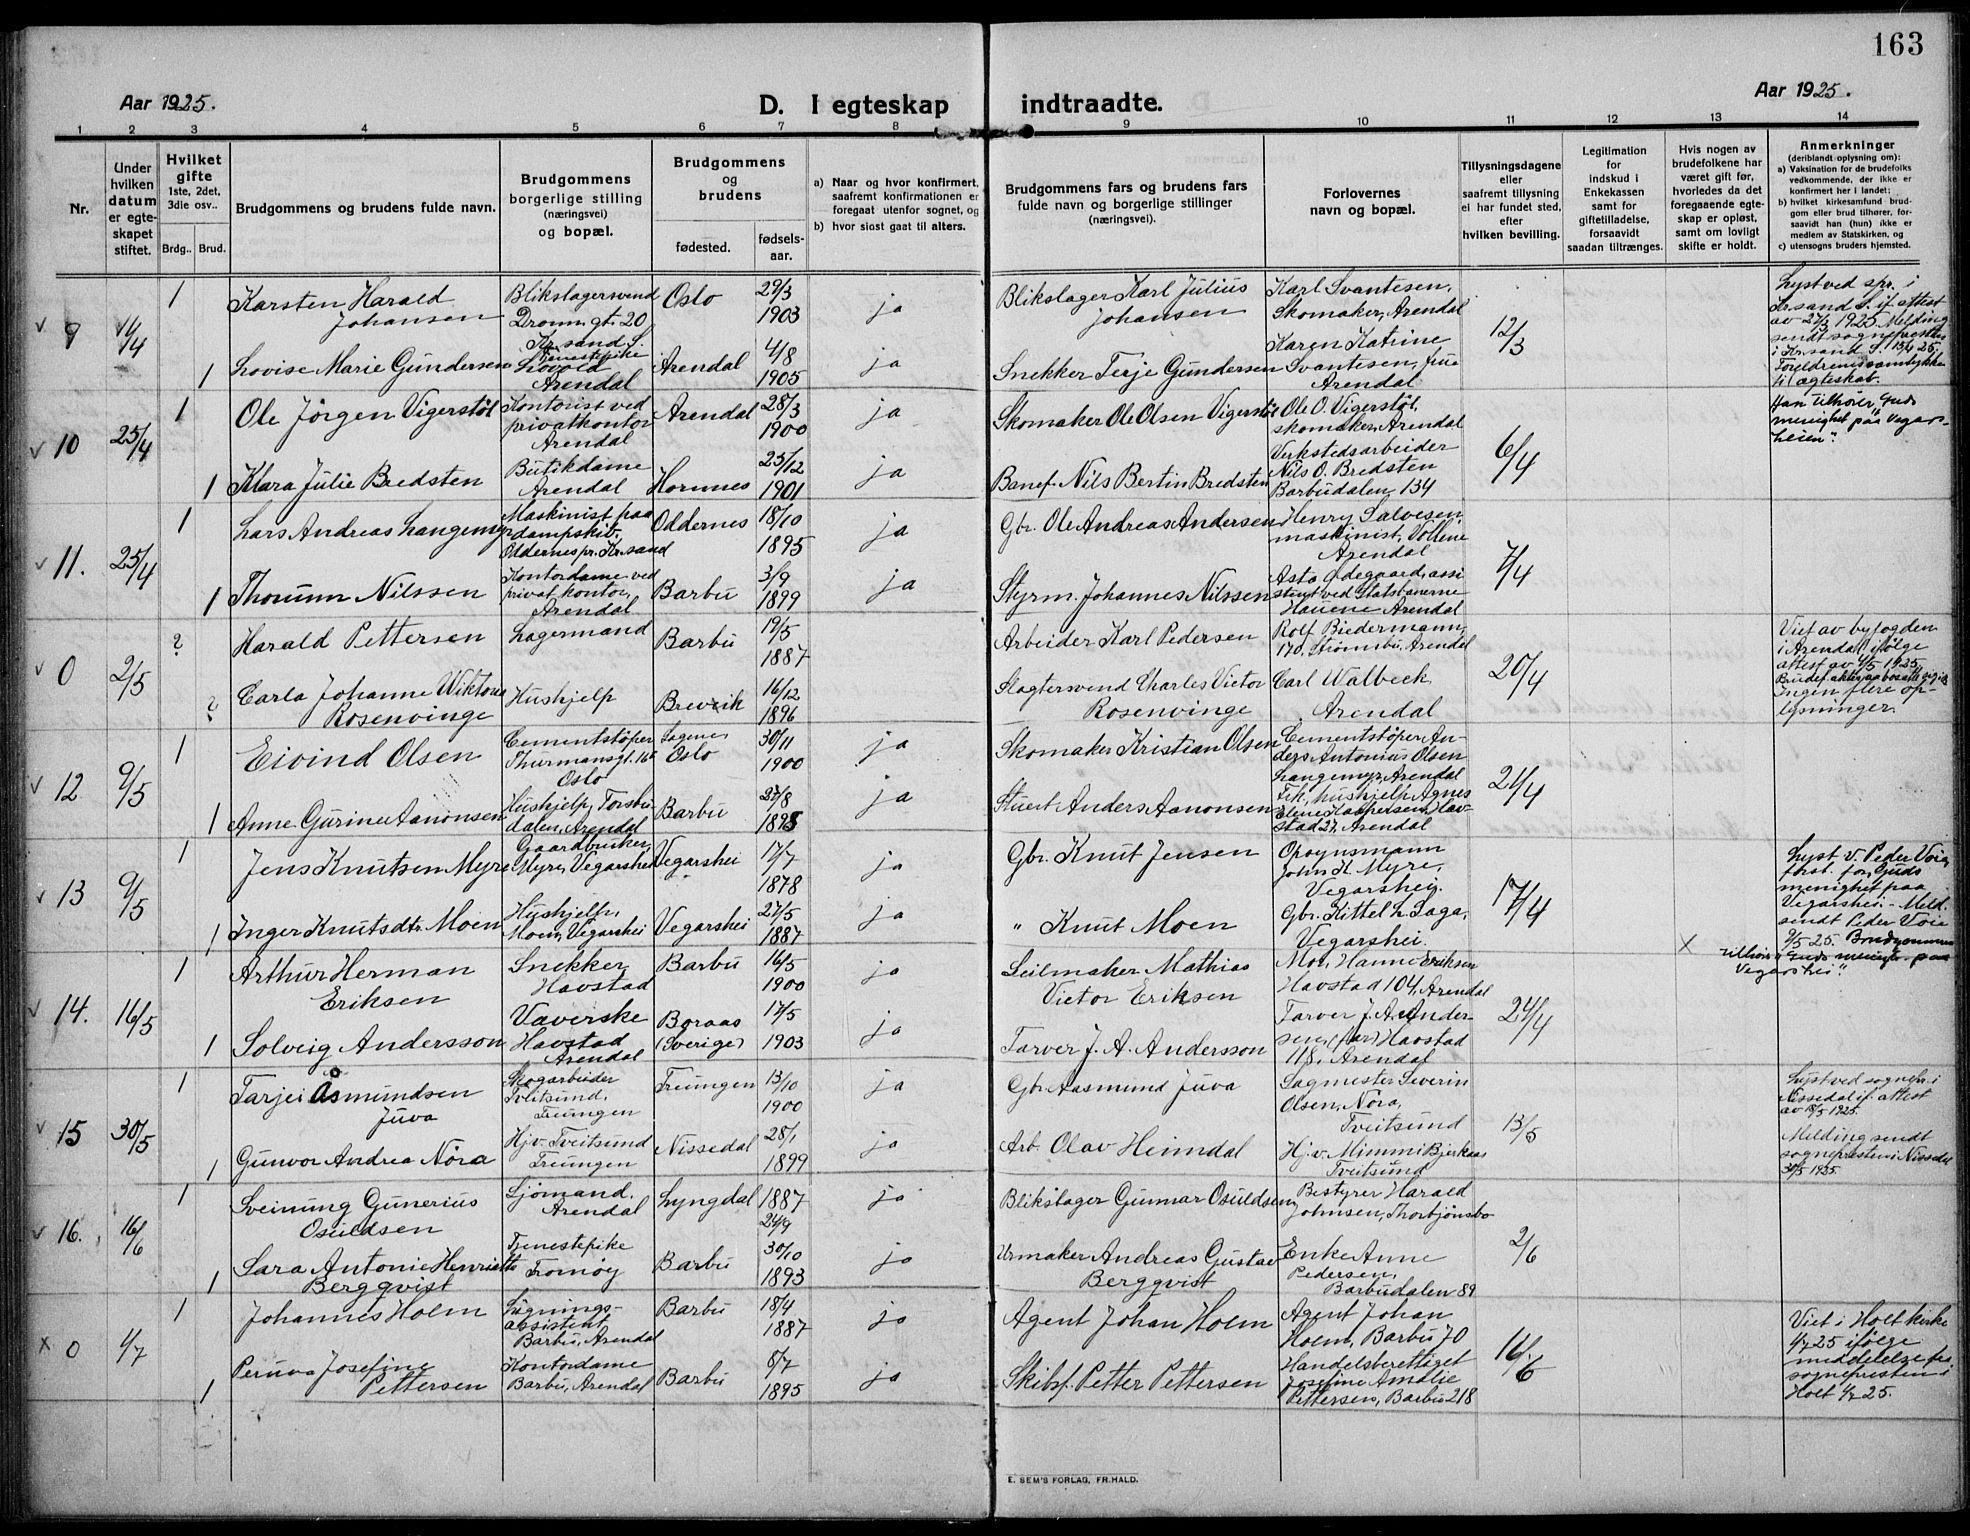 163
Aar 1925.
D. I egteskap indtraadte.
Aar 1925.
1 2 3 4 5 6 7 8 9 10 11 12 13 14
Nr.
Under
hvilken
datum
er egte-
skapet
stiftet.
Hvilket
gifte
1ste, 2det,
3die osv..
Brdg.. Brud.
Brudgommens og brudens fulde navn.
Brudgommens
borgerlige stilling
(næringsvei)
og bopæl.
Brudgommens
og
brudens
fødested.
fødsels-
aar.
a) Naar og hvor konfirmert,
saafremt konfirmationen er
foregaat utenfor sognet, og
b) hvor sidst gaat til alters.
Brudgommens fars og brudens fars
fulde navn og borgerlige stillinger
(næringsvei).
Forlovernes
navn og bopæl.
Tillysningsdagene
eller
saafremt tillysning
ei har fundet sted,
efter
hvilken bevilling.
Legitimation
for
indskud i
Enkekassen
samt for
giftetilladelse,
forsaavidt
saadan tiltrænges.
Hvis nogen av
brudefolkene har
været gift før,
hvorledes da det
foregaaende egte-
skap er opløst,
samt om lovligt
skifte er holdt.
Anmerkninger
(deriblandt oplysning om):
a) Vaksination for de brudefolks
vedkommende, der ikke er
konfirmert her i landet;
b) hvilket kirkesamfund brud-
gom eller brud tilhører, for-
saavidt han (hun) ikke er
medlem av Statskirken, og
c) utensogns bruders hjemsted.
9
1
Karsten Harald
Johansen
Blikslagersvend
Dronn. gt. 20
Kr.sand S.
Oslo
29/3
1903
ja
Blikslager Karl Julius
Johansen
Karl Svantesen,
Skomaker, Arendal
12/3
Lyst ved spr. i
Kr.sand S. if. attest
av 27/3 1925. Melding
sendt sognepresten
i Kr.sand S.
Foreldrenes samtykke
til ægteskab.
1
Lovise Marie Gundersen
Tjenestepike
Arendal
Arendal
4/8
1905
ja
Snekker Terje Gundersen
Karen Katrine
Svantesen, frue
Arendal
10
25/4
1
Ole Jørgen Vigerstøl
Kontorist ved
privatkontor
Arendal
Arendal
28/3
1900
ja
Skomaker Ole Olsen Vigerstøl
Ole O. Vigerstøl,
skomaker, Arendal
6/4
Han tilhører "Guds
menighet paa Vegars-
heien".
1
Klara Julie Bredsten
Butikdame
Arendal
Hornnes
25/12
1901
ja
Banef. Nils Bertin Bredsten
Verkstedsarbeider
Nils O. Bredsten
Barbudalen 134
11.
25/4
1
Lars Andreas Langemyr
Maskinist paa
dampskib,
Oddernes pr. Kr.sand
Oddernes
18/10
1895
ja
Gbr. Ole Andreas Andersen
Henry Salvesen,
maskinist, Vollene
Arendal
7/4
1
Thorunn Nilssen
Kontordame ved
privat kontor,
Arendal
Barbu
3/9
1899
ja
Styrm. Johannes Nilssen
Asta Ødegaard, assi
stent ved Statsbanerne
Hauene Arendal
0
2/5
?
Harald Pettersen
Lagermand
Barbu
19/5
1887
Arbeider Karl Pedersen
Rolf Biedermann,
170, Strømsbu, Arendal
20/4
Viet av byfogden
i Arendal ifølge
attest av 4/5 1925.
Ingen flere op-
lysninger.
?
Carla Johanne Wiktoria
Rosenvinge
Hushjelp
Brevik
16/12
1896
Slagtersvend Charles Victor
Rosenvinge
Carl Walbeck
Arendal
12
9/5
1
Eivind Olsen
Cementstøper
Thurmansgt.
Oslo
Sagene,
Oslo
30/11
1900
ja
Skomaker Kristian Olsen
Cementstøper An-
ders Antonius Olsen
Langemyr, Arendal
21/4
1
Anne Gurine Aanonsen
Hushjelp, Torsbu-
dalen, Arendal
Barbu
27/8
1898
ja
Stuert Anders Aanonsen
Frk. hushjelp Agnes
Elene Kaspersen, Hav-
stad 27, Arendal
13
9/5
1
Jens Knutsen Myre
Gaardbruker,
Myre, Vegarshei
Vegarshei
17/7
1878
ja
Gbr. Knut Jensen
Opsynsmann
John K. Myre,
Vegarshei.
17/4
Lyst v. Peder Voie,
forst. for "Guds
menighet paa
Vegarshei. Meld.
sendt Peder Voie
9/5 25. Brudgommen
tilhører "Guds menigh. paa
Vegarshei".
1
Inger Knutsdtr. Moen
Hushjelp,
Moen, Vegarshei
Vegarshei
27/5
1887
ja
" Knut Moen
Gbr. Kittel L. Saga,
Vegarshei.
14.
16/5
1
Arthur Herman
Eriksen
Snekker
Havstad
Barbu
16/5
1900
ja
Seilmaker Mathias
Victor Eriksen
Mor, Hanne Eriksen
Havstad 104, Arendal
24/4
1
Solveig Andersson
Væverske
Havstad
Arendal
Boraas
(Sverige)
17/5
1903
ja
Farver J. A. Andersson
Farver J. A. Ander-
sen, (far) Havstad
118, Arendal
15
30/5
1
Tarjei Åsmundsen
Juva
Skogarbeider
Tveitsund,
Treungen
Treungen
13/10
1900
ja
Gbr. Aasmund Juva
Sagmester Severin
Olsen, Nora,
Tveitsund
13/5
Lyst ved sognepr. i
Nissedal if. attest
Melding sendt
sognepresten i Nissedal
30/5 1925.
1
Gunvor Andrea Nora
Hj.v. Tveitsund
Treungen
Nissedal
28/1
1899
ja
Arb. Olav Heimdal
Hj.v. Mimmi Bjerkaas
Tveitsund
16.
16/6
1
Sveinung Gunerius
Osuldsen
Sjømand,
Arendal
Lyngdal
1887
24/9
ja
Blikslager Gunnar Osuldsen
Bestyrer Harald
Johnsen, Thorbjønsbo
2/6
1
Sara Antonie Henriette
Bergqvist
Tjenestepike
Tromøy
Barbu
30/10
1893
ja
Urmaker Andreas Gustav
Bergqvist
Enke Anne
Pedersen,
Barbudalen 89
0
4/7
1
Johannes Holm
assistent
Barbu, Arendal
Barbu
18/4
1887
ja
Agent Johan Holm
Agent Johan
Holm, Barbu 70
16/6
Viet i Holt kirke
4/7 25 ifølge
meddelelse fra
sognepresten i
Holt 4/7 25.
1
Josefine
Pettersen
Kontordame
Barbu, Arendal
Barbu
8/7
1895
ja
Skibsf. Petter Pettersen
Handelsberettiget
Josefine Amalie
Pettersen, Barbu 218
E. SEM'S FORLAG, FR.HALD.